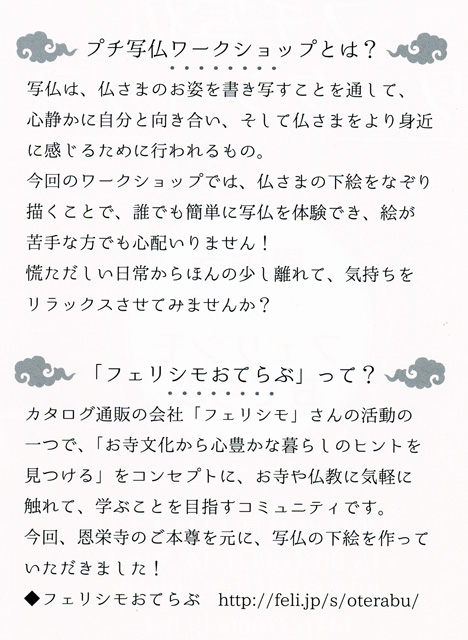 プチ写仏ワークショップとは？
写仏は、仏さまのお姿を書き写すことを通して、
心静かに自分と向き合い、そして仏さまをより身近
に感じるために行われるもの。
今回のワークショップでは、仏さまの下絵をなぞり
描くことで、誰でも簡単に写仏を体験でき、絵が
苦手な方でも心配いりません！
慌ただしい日常からほんの少し離れて、気持ちを
リラックスさせてみませんか？
「フェリシモおてらぶ」って？
カタログ通販の会社「フェリシモ」さんの活動の
一つで、「お寺文化から心豊かな暮らしのヒントを
見つける」をコンセプトに、お寺や仏教に気軽に
触れて、学ぶことを目指すコミュニティです。
今回、恩栄寺のご本尊を元に、写仏の下絵を作って
いただきました！
◆フェリシモおてらぶ　http://feli.jp/s/oterabu/